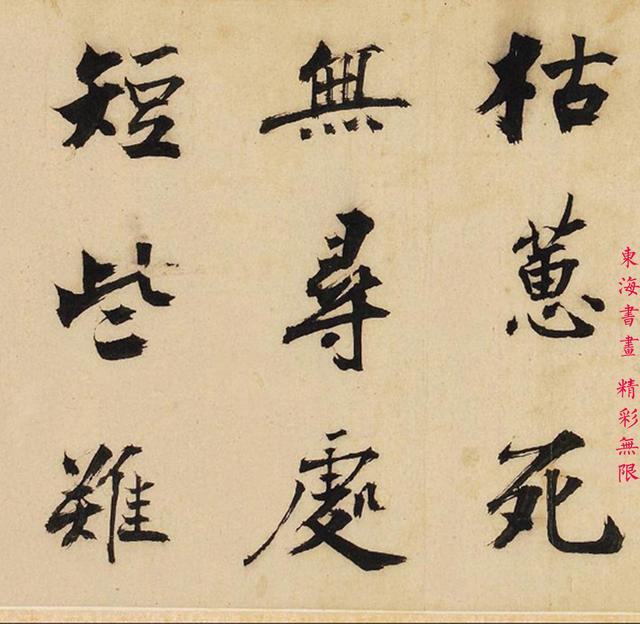 枯蕙死
無尋處
短些難
東海書畫 精彩無限